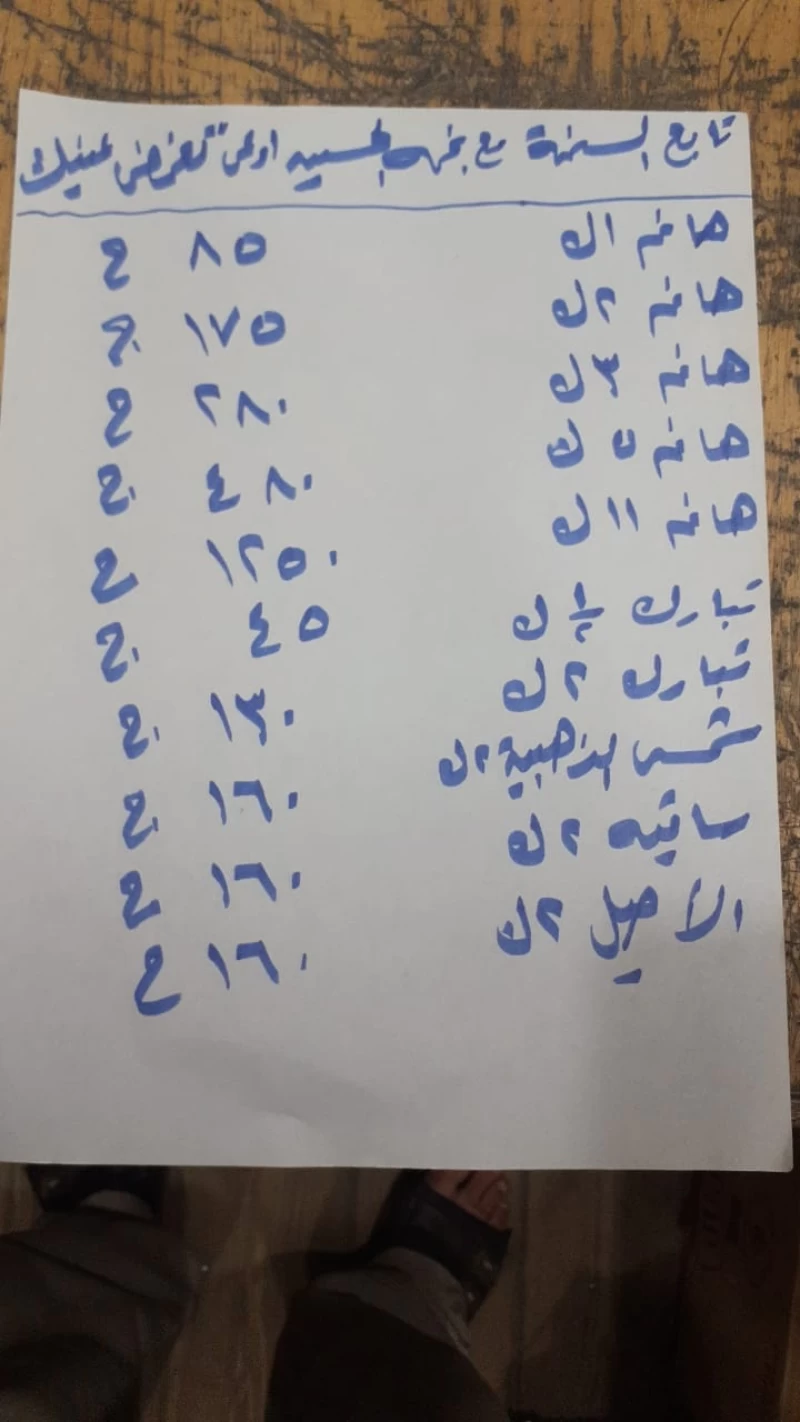 تابع السمنة مع بهجة الحسين اوعى "تغمض عينيك
هانم ١ك ٨٥ ج
هانم ٢ك ١٧٥ ج
هانم ٣ك ٢٨٠ ج
هانم ٥ك ٤٨٠ ج
هانم ١١ك ١٢٥٠ ج
تبارك ١/٢ ك ٤٥ ج
تبارك ٢ك ١٣٠ ج
شمس الذهبية ٢ك ١٦٠ ج
ساقيه ٢ك ١٦٠ ج
الأصيل ٢ك ١٦٠ ج